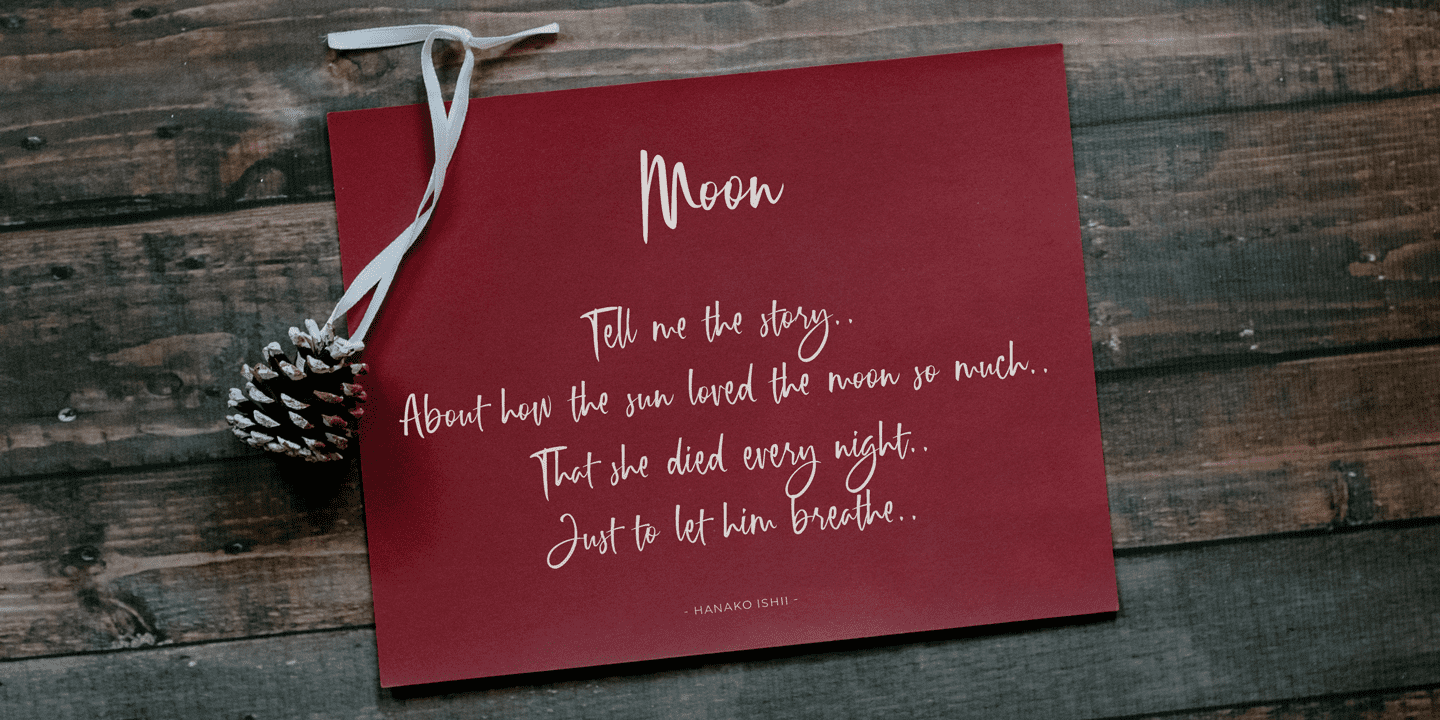 Moon
Tell me the story..
About how the sun loved the moon so much..
That she died every night..
Just to let him breathe..
- HANAKO ISHII -